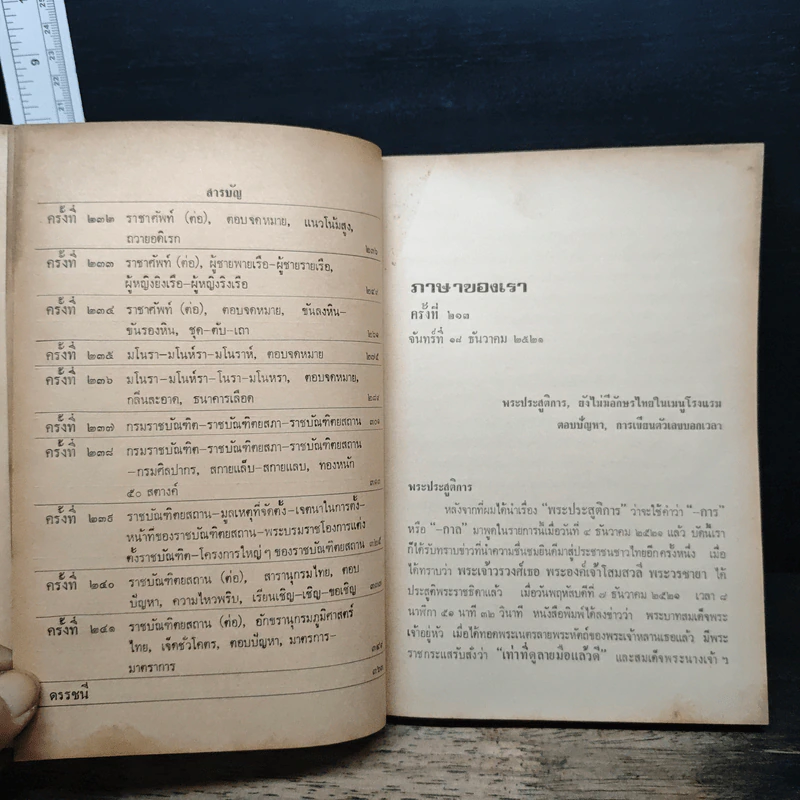 9
25
24
23
22
21
สารบัญ
ครั้งที่ ๒๓๒ ราชาศัพท์ (ต่อ), ตอบจดหมาย, แนวโน้มสูง,
ถวายอดิเรก
ครั้งที่ ๒๓๓ ราชาศัพท์ (ต่อ), ผู้ชายพายเรือ-ผู้ชายรายเรือ,
ผู้หญิงยิงเรือ-ผู้หญิงริงเรือ
ครั้งที่ ๒๓๔ ราชาศัพท์ (ต่อ), ตอบจดหมาย, ขันลงหิน-
ขันรองหิน, ชุด-ตับ-เถา
ครั้งที่ ๒๓๕ มโนรา-มโนห์รา-มโนราห์, ตอบจดหมาย ๒๗๕
ครั้งที่ ๒๓๖ มโนรา-มโนห์รา-โนรา-มโนหรา, ตอบจดหมาย,
กลืนสะอาด, ธนาคารเลือด
ครั้งที่ ๒๓๗ กรมราชบัณฑิต-ราชบัณฑิตยสภา-ราชบัณฑิตยสถาน
ครั้งที่ ๒๓๘ กรมราชบัณฑิต-ราชบัณฑิตยสภา-ราชบัณฑิตยสถาน
-กรมศิลปากร, สกายแล็บ-สกายแลบ, ทองหนัก
๕๐ สตางค์
ครั้งที่ ๒๓๙ ราชบัณฑิตยสถาน-มูลเหตุที่จัดตั้ง-เจตนาในการตั้ง-
หน้าที่ของราชบัณฑิตยสถาน-พระบรมราชโองการแต่ง
ตั้งราชบัณฑิต-โครงการใหญ่ ๆ ของราชบัณฑิตยสถาน
ครั้งที่ ๒๔๐ ราชบัณฑิตยสถาน (ต่อ), สารานุกรมไทย, ตอบ
ปัญหา, ความไหวพริบ, เรียนเชิญ-เชิญ-ขอเชิญ
ครั้งที่ ๒๔๑ ราชบัณฑิตยสถาน (ต่อ), อักขรานุกรมภูมิศาสตร์
ไทย, เจ็ดชั่วโคตร, ตอบปัญหา, มาตรการ-
มาตราการ
ดรรชนี
ภาษาของเรา
ครั้งที่ ๒๑๓
จันทร์ที่ ๑๘ ธันวาคม ๒๕๒๑
พระประสูติการ, ยังไม่มีอักษรไทยในเมนูโรงแรม
ตอบปัญหา, การเขียนตัวเลขบอกเวลา
พระประสูติการ
หลังจากที่ผมได้นำเรื่อง "พระประสูติการ" ว่าจะใช้คำว่า "-การ"
หรือ "-กาล" มาพูดในรายการนี้เมื่อวันที่ ๔ ธันวาคม ๒๕๒๑ แล้ว บัดนี้เรา
ก็ได้รับทราบข่าวที่นำความชื่นชมยินดีมาสู่ประชาชนชาวไทยอีกครั้งหนึ่ง เมื่อ
ได้ทราบว่า พระเจ้าวรวงศ์เธอ พระองค์เจ้าโสมสวลี พระวรชายา ได้
ประสูติพระราชธิดาแล้ว เมื่อวันพฤหัสบดีที่ ๗ ธันวาคม ๒๕๒๑ เวลา ๘
นาฬิกา ๕๑ นาที ๓๒ วินาที หนังสือพิมพ์ได้ลงข่าวว่า พระบาทสมเด็จพระ
เจ้าอยู่หัว เมื่อได้ทอดพระเนตรลายพระหัตถ์ของพระเจ้าหลานเธอแล้ว มีพระ
ราชกระแสรับสั่งว่า "เท่าที่ดูลายมือแล้วดี" และสมเด็จพระนางเจ้า ฯ